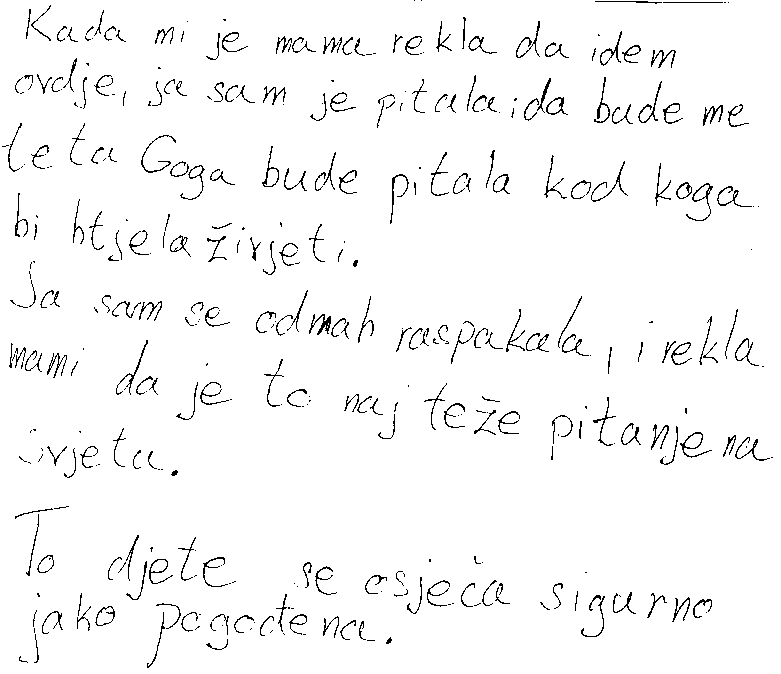 Kada mi je mama rekla da idem
ovdje, ja sam je pitala i da bude me
teta Goga bude pitala kod koga
bi htjela živjeti.
Ja sam se odmah raspakala, i rekla
mami da je to naj teže pitanje na
svjeta.
To djete se osjeća sigurno
jako pogođena.